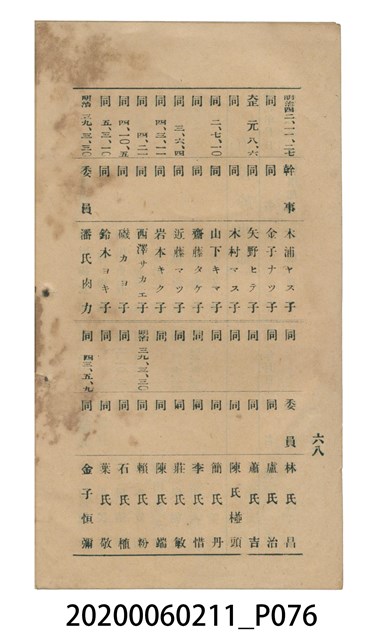 六八
明治四二、一一、二七 幹事 木浦ヤス子
同 同 金子ナツ子
大正元、八、六 同 矢野ヒテ子
同 同 木村マス子
同 二、七、一〇 同 山下キマ子
同 同 齋藤タケ子
同 三、六、四 同 近藤マツ子
同 四、三、一一 同 岩本キク子
同 四、二一 同 西澤サカエ子
同 四、一〇、五 同 磯カヨ子
同 五、三、一〇 同 鈴木ヨキ子
明治三九、三、三〇 委員 潘氏肉力
同 委員 林氏昌
同 同 盧氏治
同 同 蕭氏吉
同 同 陳氏椪頭
同 同 簡氏丹
同 同 李氏惜
同 同 莊氏敏
同 同 陳氏端
明治三九、三、三〇 同 賴氏粉
同 同 石氏植
同 同 葉氏敬
同 四三、五、九 同 金子恒彌
20200060211_P076